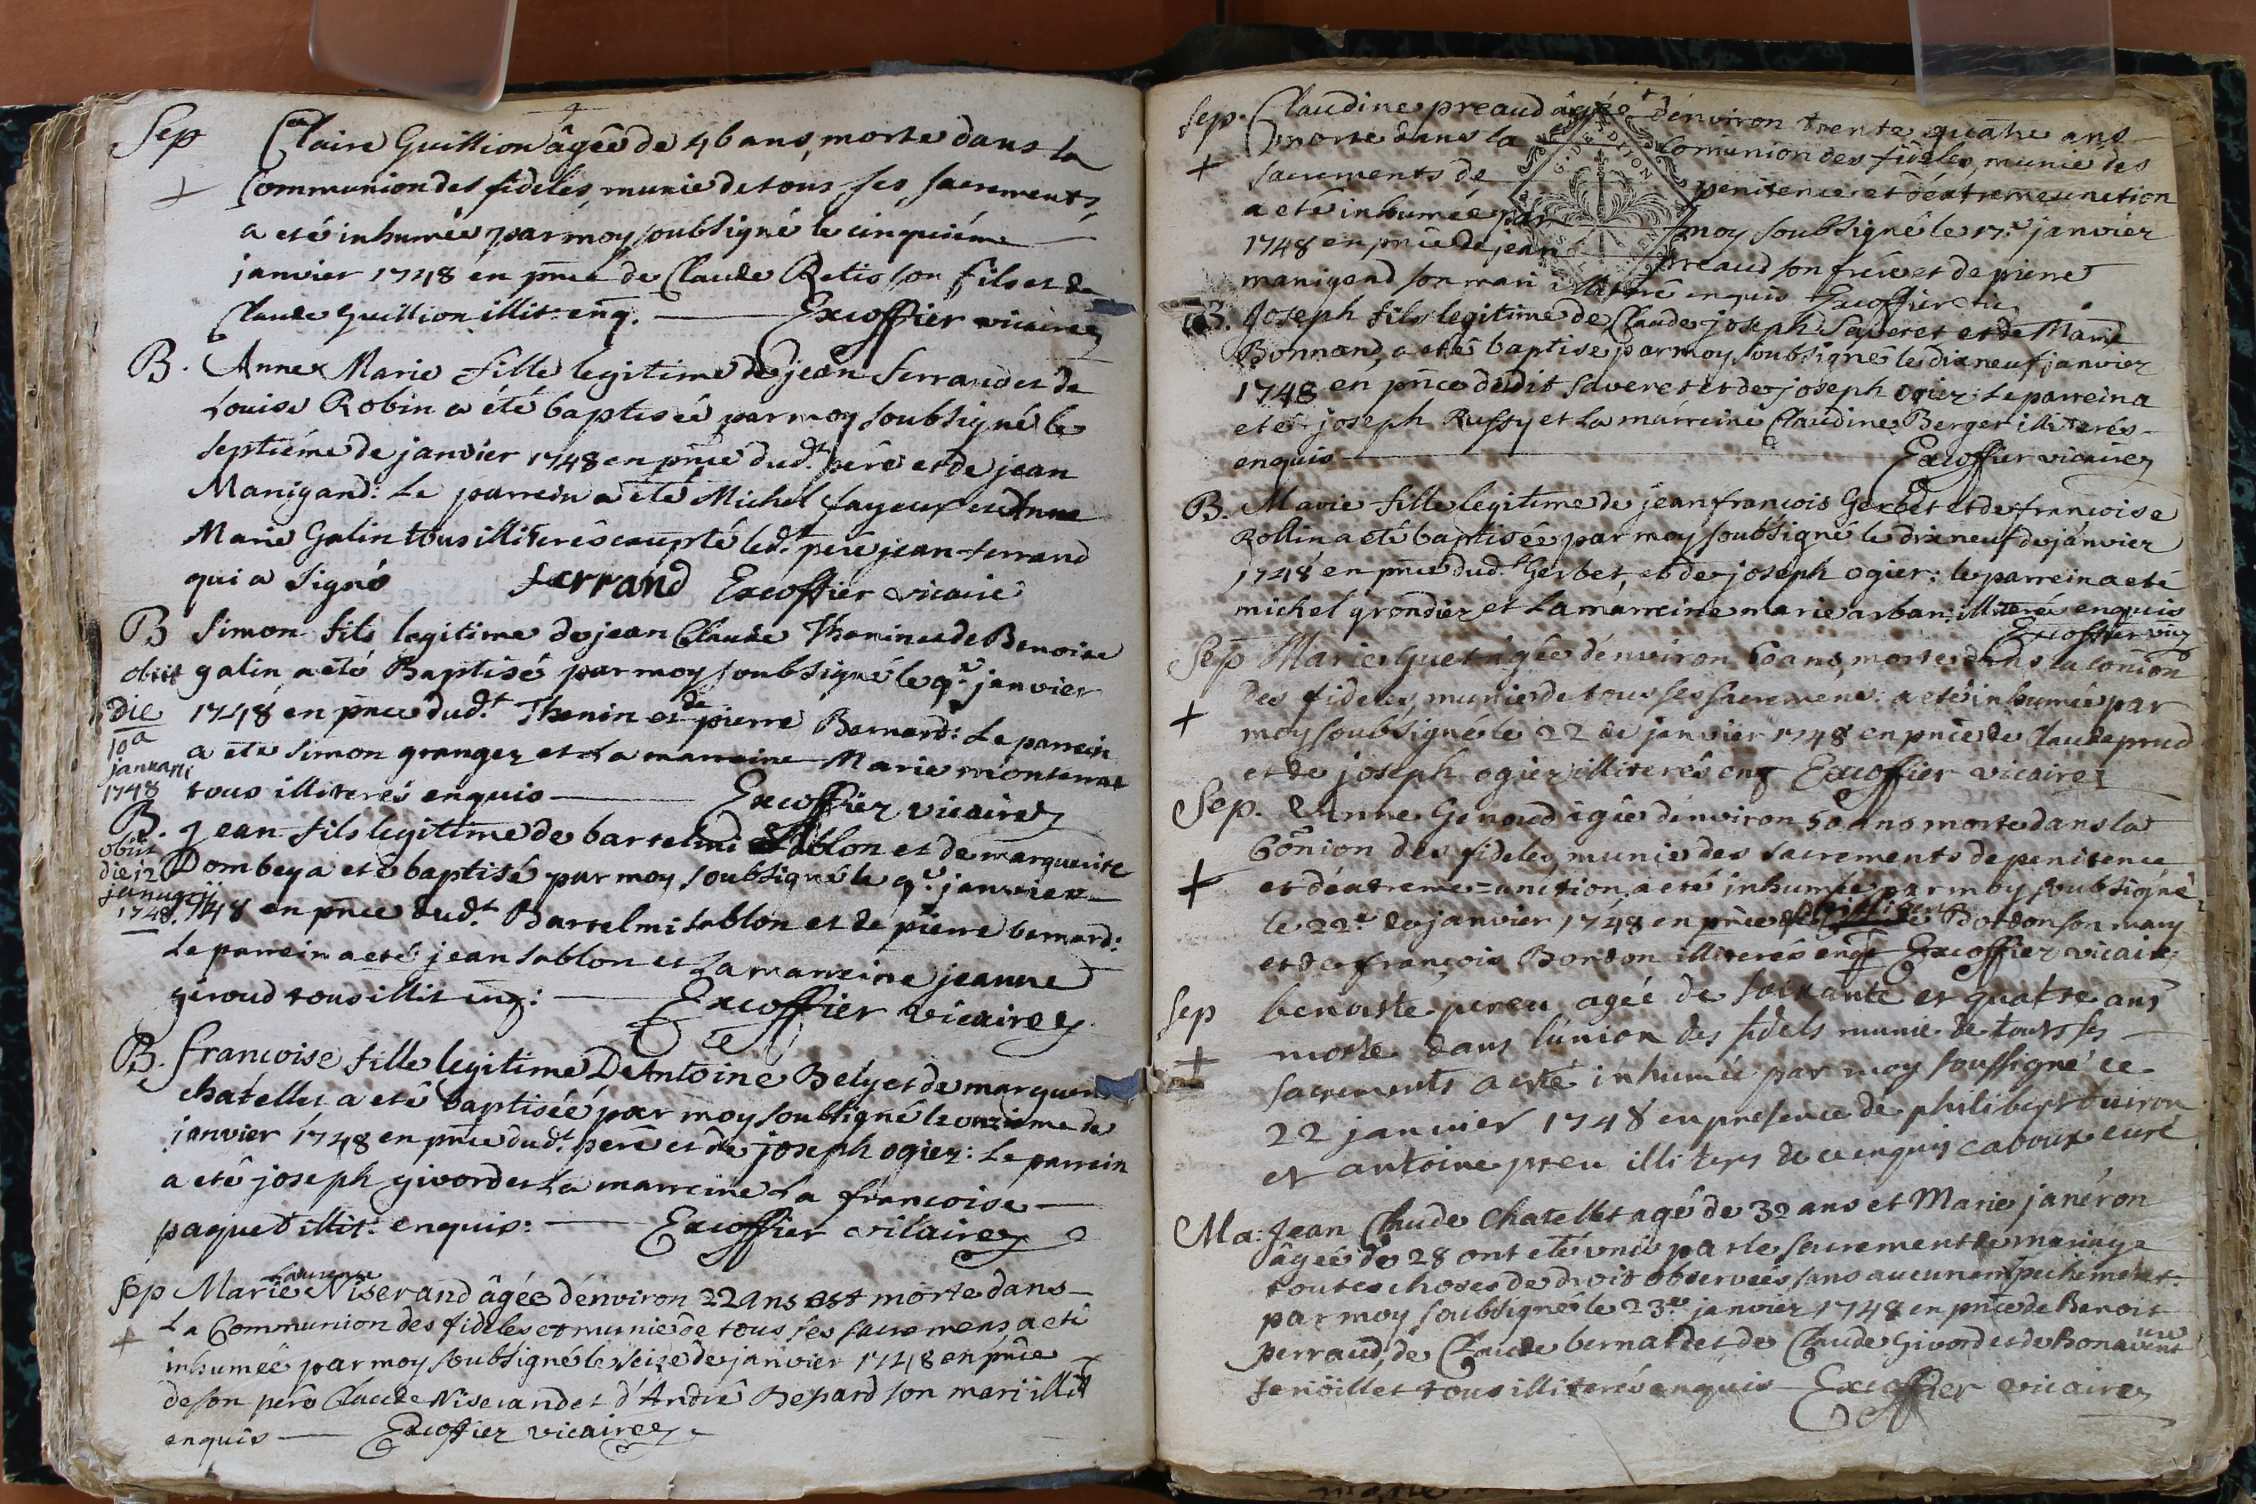 Sep Claire Guillion âgée de 46 ans, morte dans la
+ Communion des fideles, munie de tous ses sacrements,
a eté inhumée par moy soubsigné le cinquiéme
janvier 1748 en pnce de Claude Retis son fils et de
Claude Guillion illit: enq. Excoffier vicaire
B. Anne Marie fille legitime de jean ferrand et de
Louise Robin a été baptisée par moy soubsigné le
septiéme de janvier 1748 en pnce dud.t pere et de jean
Manigand: Le parrein a eté Michel fayeux et Anne
Marie Galin tous illiterés led.t pere jean ferrand
qui a signé ferrand Excoffier vicaire
B Simon fils legitime de jean Claude Thenin et de Benoite
obiit galin, a eté Baptisé par moy soubsigné le 9.e janvier
die 1748 en pnce dud.t Thenin et de pierre Bernard: Le parrein
10a a eté Simon granger et La marreine Marie
januarii
1748 tous illiterés enquis Excoffier vicaire
B. Jean fils legitime de bartelmi Sablon et de marguerite
obiit
die 12 Dombey a eté baptisé par moy soubsigné le 9.e janvier
januarij
1748. 1748 en pnce dud.t Bartelmi Sablon et de pierre bernard:
Le parrein a eté jean Sablon et La marreine jeanne
giroud tous illit enq: Excoffier vicaire
B. francoise fille legitime De Antoine Bely et de
chatellet a eté baptisée par moy soubsigné le onzieme de
janvier 1748 en pnce dud.t pere et de joseph ogier: Le parrein
a eté joseph givord et La marreine La francoise
paquet illit: enquis: Excoffier vicaire
Sep Marie Laurence Niserand âgée d'environ 22 ans est morte dans
+ La Communion des fideles et munie de tous ses sacremens, a eté
inhumée par moy soubsigné le seize de janvier 1748 en pnce
de son pere Claude Niserand et d'André Bepard son mari illit
enquis Excoffier vicaire
Sep. Claudine preaud âgée d'environ trente quatre ans
+ morte dans la Comunion des fideles, munie des
sacrements de penitence et d'extreme unction
a eté inhumée par moy soubsigné le 17.e janvier
1748 en pnce de jean preaud son frere et de pierre
manigand son mari enquis Excoffier vic
G. DE DIJON
B. Joseph fils legitime de Claude joseph Saveret et de Marie
Bonnand, a eté baptisé par moy soubsigné le dixneuf janvier
1748 en pnce dudit Saveret et de joseph ogier: Le parrein a
eté joseph Ruffy et La marreine Claudine Berger illiterés
enquis Excoffier vicaire
B. Marie fille legitime de jean francois Gerbet et de francoise
Rollin a eté baptisée par moy soubsigné le dixneuf de janvier
1748 en pnce dud.t Gerbet, et de joseph ogier: le parrein a eté
michel grondier et La marreine marie arban: illiteré enquis
Excoffier vic
Sep Marie Guet agée d'environ 60 ans, morte dans la Conion
+ Des fideles, munie de tous ses sacremens: a eté inhumée par
moy soubsigné le 22 de janvier 1748 en pnce de Claude prud
et de joseph ogier illiterés enq Excoffier vicaire
Sep. Anne Genoud agée d'environ 50 ans morte dans la
Conion des fideles munie des sacrements de penitence
+ et d'extreme=unction, a eté inhumée par moy soubsigné
le 22.e de janvier 1748 en pnce de Bordon son mary
et de françois Bordon illiterés enq Excoffier vicaire
Sep benoiste pereu agée de soixante et quatre ans
+ morte dans l'union des fidels munie de touts ses
sacrements a esté inhumée par moy soussigné ce
22 janvier 1748 en presence de philibert
et antoine preu illiters de ce enquis caboux curé
Ma: Jean Claude Chatellet agé de 32 ans et Marie janéron
âgée de 28 ont eté unis par le sacrement de mariage
toutes choses de droit observées sans aucun empechement:
par moy soubsigné le 23.e janvier 1748 en pnce de Benoit
perraud, de Claude bernard et de Claude Givord et de Bonaventure
tous illiterés enquis Excoffier vicaire